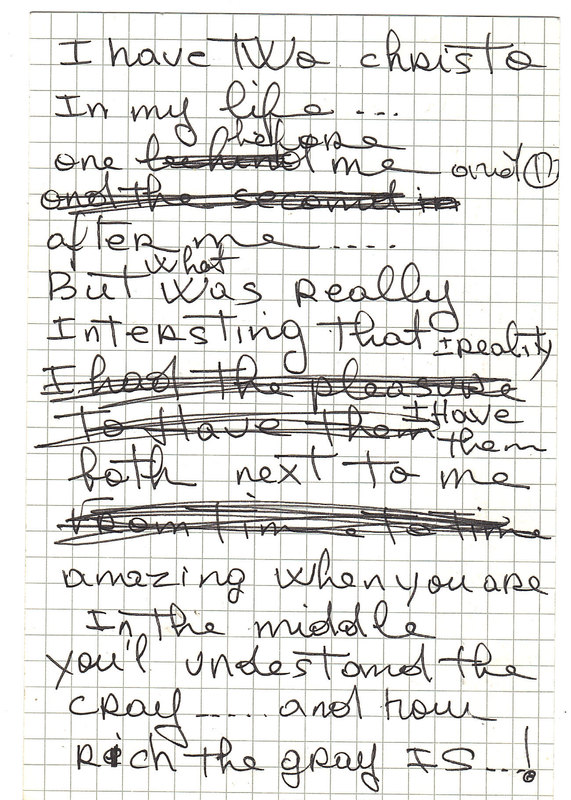 I have two christo
In my life ....
before
one behind me and (1)
and the second is
after me .....
what
But was really
Intersting that I reality
I had the pleasure
To Have them I Have
them
both next to me
From time to time
amazing when you are
In the middle
you'l undestand the
cray ..... and how
Rich the gray IS ...!